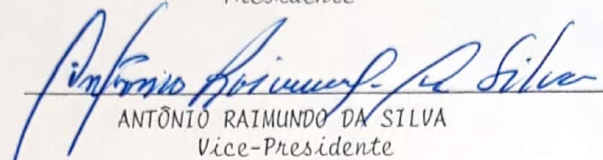 Presidente
Antônio Raimundo da Silva
ANTÔNIO RAIMUNDO DA SILVA
Vice-Presidente